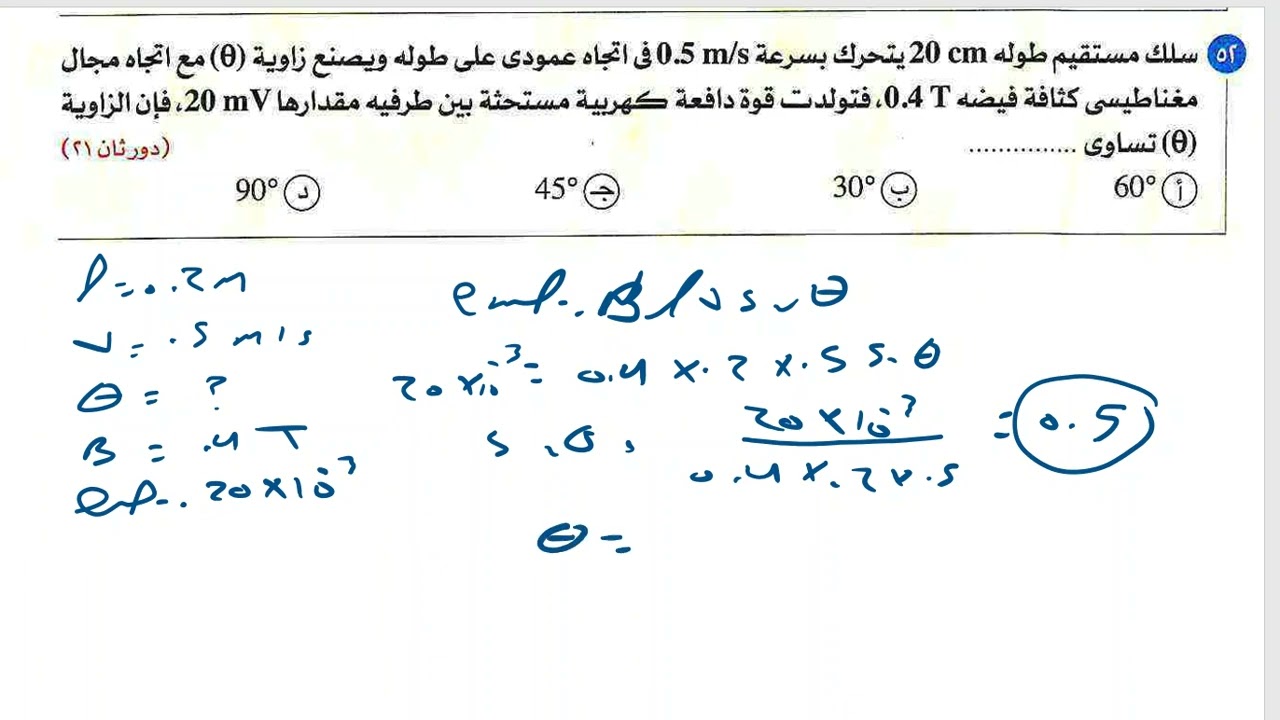 ٥٢ سلك مستقيم طوله 20 cm يتحرك بسرعة 0.5 m/s فى اتجاه عمودى على طوله ويصنع زاوية (θ) مع اتجاه مجال
مغناطيسى كثافة فيضه 0.4 T، فتولدت قوة دافعة كهربية مستحثة بين طرفيه مقدارها 20 mV، فإن الزاوية
(θ) تساوى ............... (دور ثان ٢١)
أ 60° ب 30° جـ 45° د 90°
l = 0.2 m
v = .5 m/s
θ = ?
B = .4 T
emf = 20 × 10⁻³
emf = B l v sin θ
20 × 10⁻³ = 0.4 × .2 × .5 sin θ
sin θ = 20 × 10⁻³ / 0.4 × .2 × .5 = 0.5
θ =